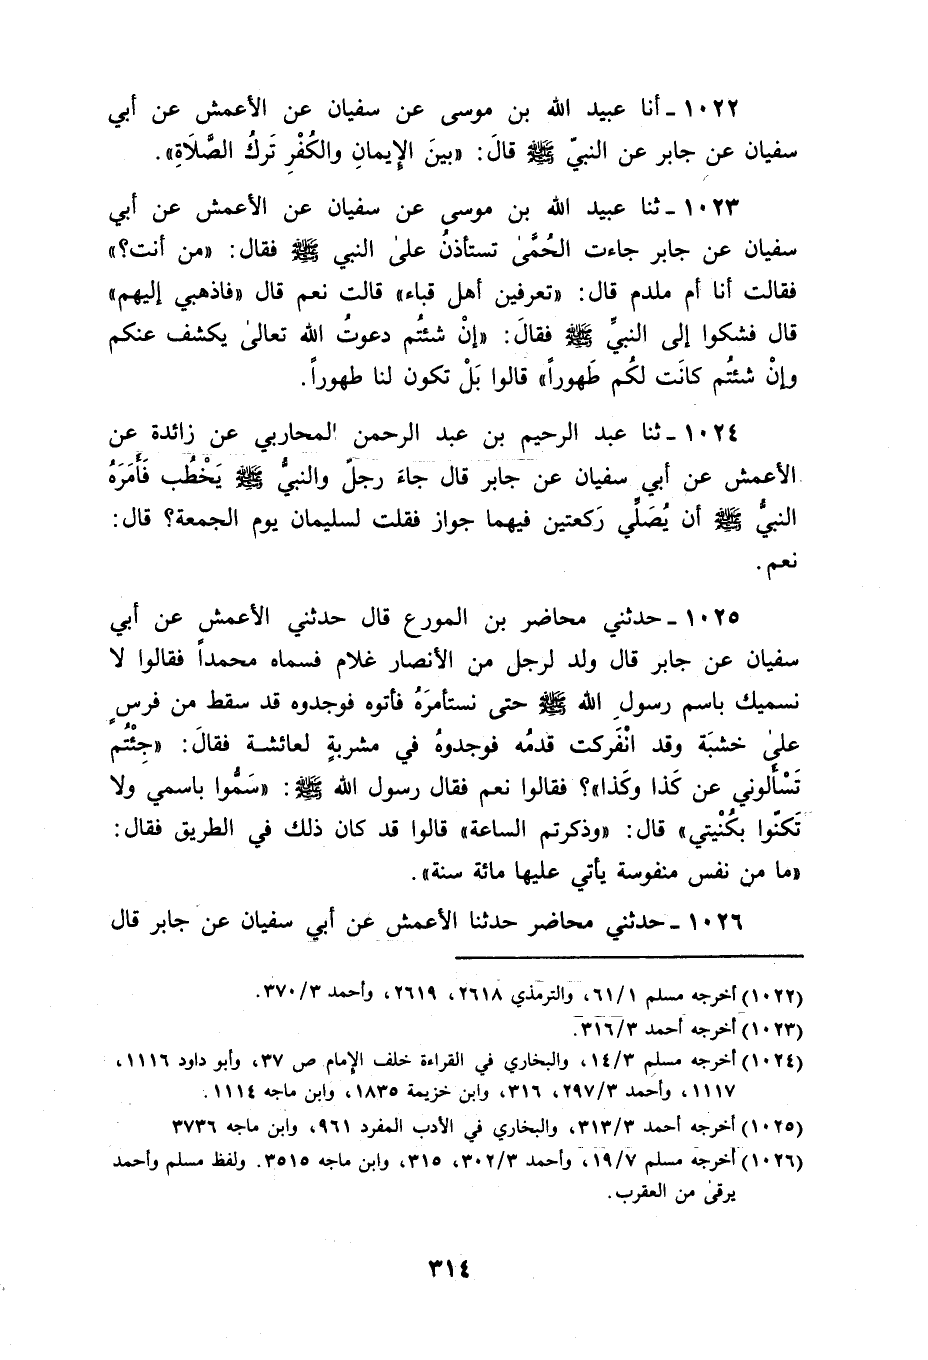 ١٠٢٢ ـ أنا عبيد الله بن موسى عن سفيان عن الأعمش عن أبي
سفيان عن جابر عن النبيّ ﷺ قالَ: «بينَ الإيمانِ والكُفْرِ تَركُ الصَّلَاةِ».
١٠٢٣ ـ ثنا عبيد الله بن موسى عن سفيان عن الأعمش عن أبي
سفيان عن جابر جاءت الحُمَّىٰ تستأذنُ علىٰ النبي ﷺ فقال: «من أنت؟»
فقالت أنا أم ملدم قال: «تعرفين أهل قباء» قالت نعم قال «فاذهبي إليهم»
قال فشكوا إلى النبيِّ ﷺ فقالَ: «إنْ شئتُم دعوتُ الله تعالىٰ يكشف عنكم
وإنْ شئتُم كانَت لكُم طَهوراً» قالوا بَلْ تكون لنا طهوراً.
١٠٢٤ ـ ثنا عبد الرحيم بن عبد الرحمن المحاربي عن زائدة عن
الأعمش عن أبي سفيان عن جابر قال جاءَ رجلٌ والنبيُّ ﷺ يَخْطُب فَأَمَرَهُ
النبيُّ ﷺ أن يُصَلِّي رَكعتين فيهما جواز فقلت لسليمان يوم الجمعة؟ قال:
نعم.
١٠٢٥ ـ حدثني محاضر بن المورع قال حدثني الأعمش عن أبي
سفيان عن جابر قال ولد لرجل من الأنصار غلام فسماه محمداً فقالوا لا
نسميك باسم رسول الله ﷺ حتى نستأمرَهُ فأتوه فوجدوه قد سقط من فرسٍ
علىٰ خشبَة وقد انْفَركت قدمُه فوجدوهُ في مشربةٍ لعائشة فقالَ: «جِئْتُم
تَسْأَلوني عن كَذا وكَذا»؟ فقالوا نعم فقال رسول الله ﷺ: «سَمُّوا باسمي ولا
تَكنّوا بكُنْيتي» قال: «وذكرتم الساعة» قالوا قد كان ذلك في الطريق فقال:
«ما من نفس منفوسة يأتي عليها مائة سنة».
١٠٢٦ ـ حدثني محاضر حدثنا الأعمش عن أبي سفيان عن جابر قال
(١٠٢٢) أخرجه مسلم ٦١/١، والترمذي ٢٦١٨، ٢٦١٩، وأحمد ٣٧٠/٣.
(١٠٢٣) أخرجه أحمد ٣١٦/٣.
(١٠٢٤) أخرجه مسلم ١٤/٣، والبخاري في القراءة خلف الإمام ص ٣٧، وأبو داود ١١١٦،
١١١٧، وأحمد ٢٩٧/٣، ٣١٦، وابن خزيمة ١٨٣٥، وابن ماجه ١١١٤.
(١٠٢٥) أخرجه أحمد ٣١٣/٣، والبخاري في الأدب المفرد ٩٦١، وابن ماجه ٣٧٣٦
(١٠٢٦) أخرجه مسلم ١٩/٧، وأحمد ٣٠٢/٣، ٣١٥، وابن ماجه ٣٥١٥. ولفظ مسلم وأحمد
يرقىٰ من العقرب.
٣١٤